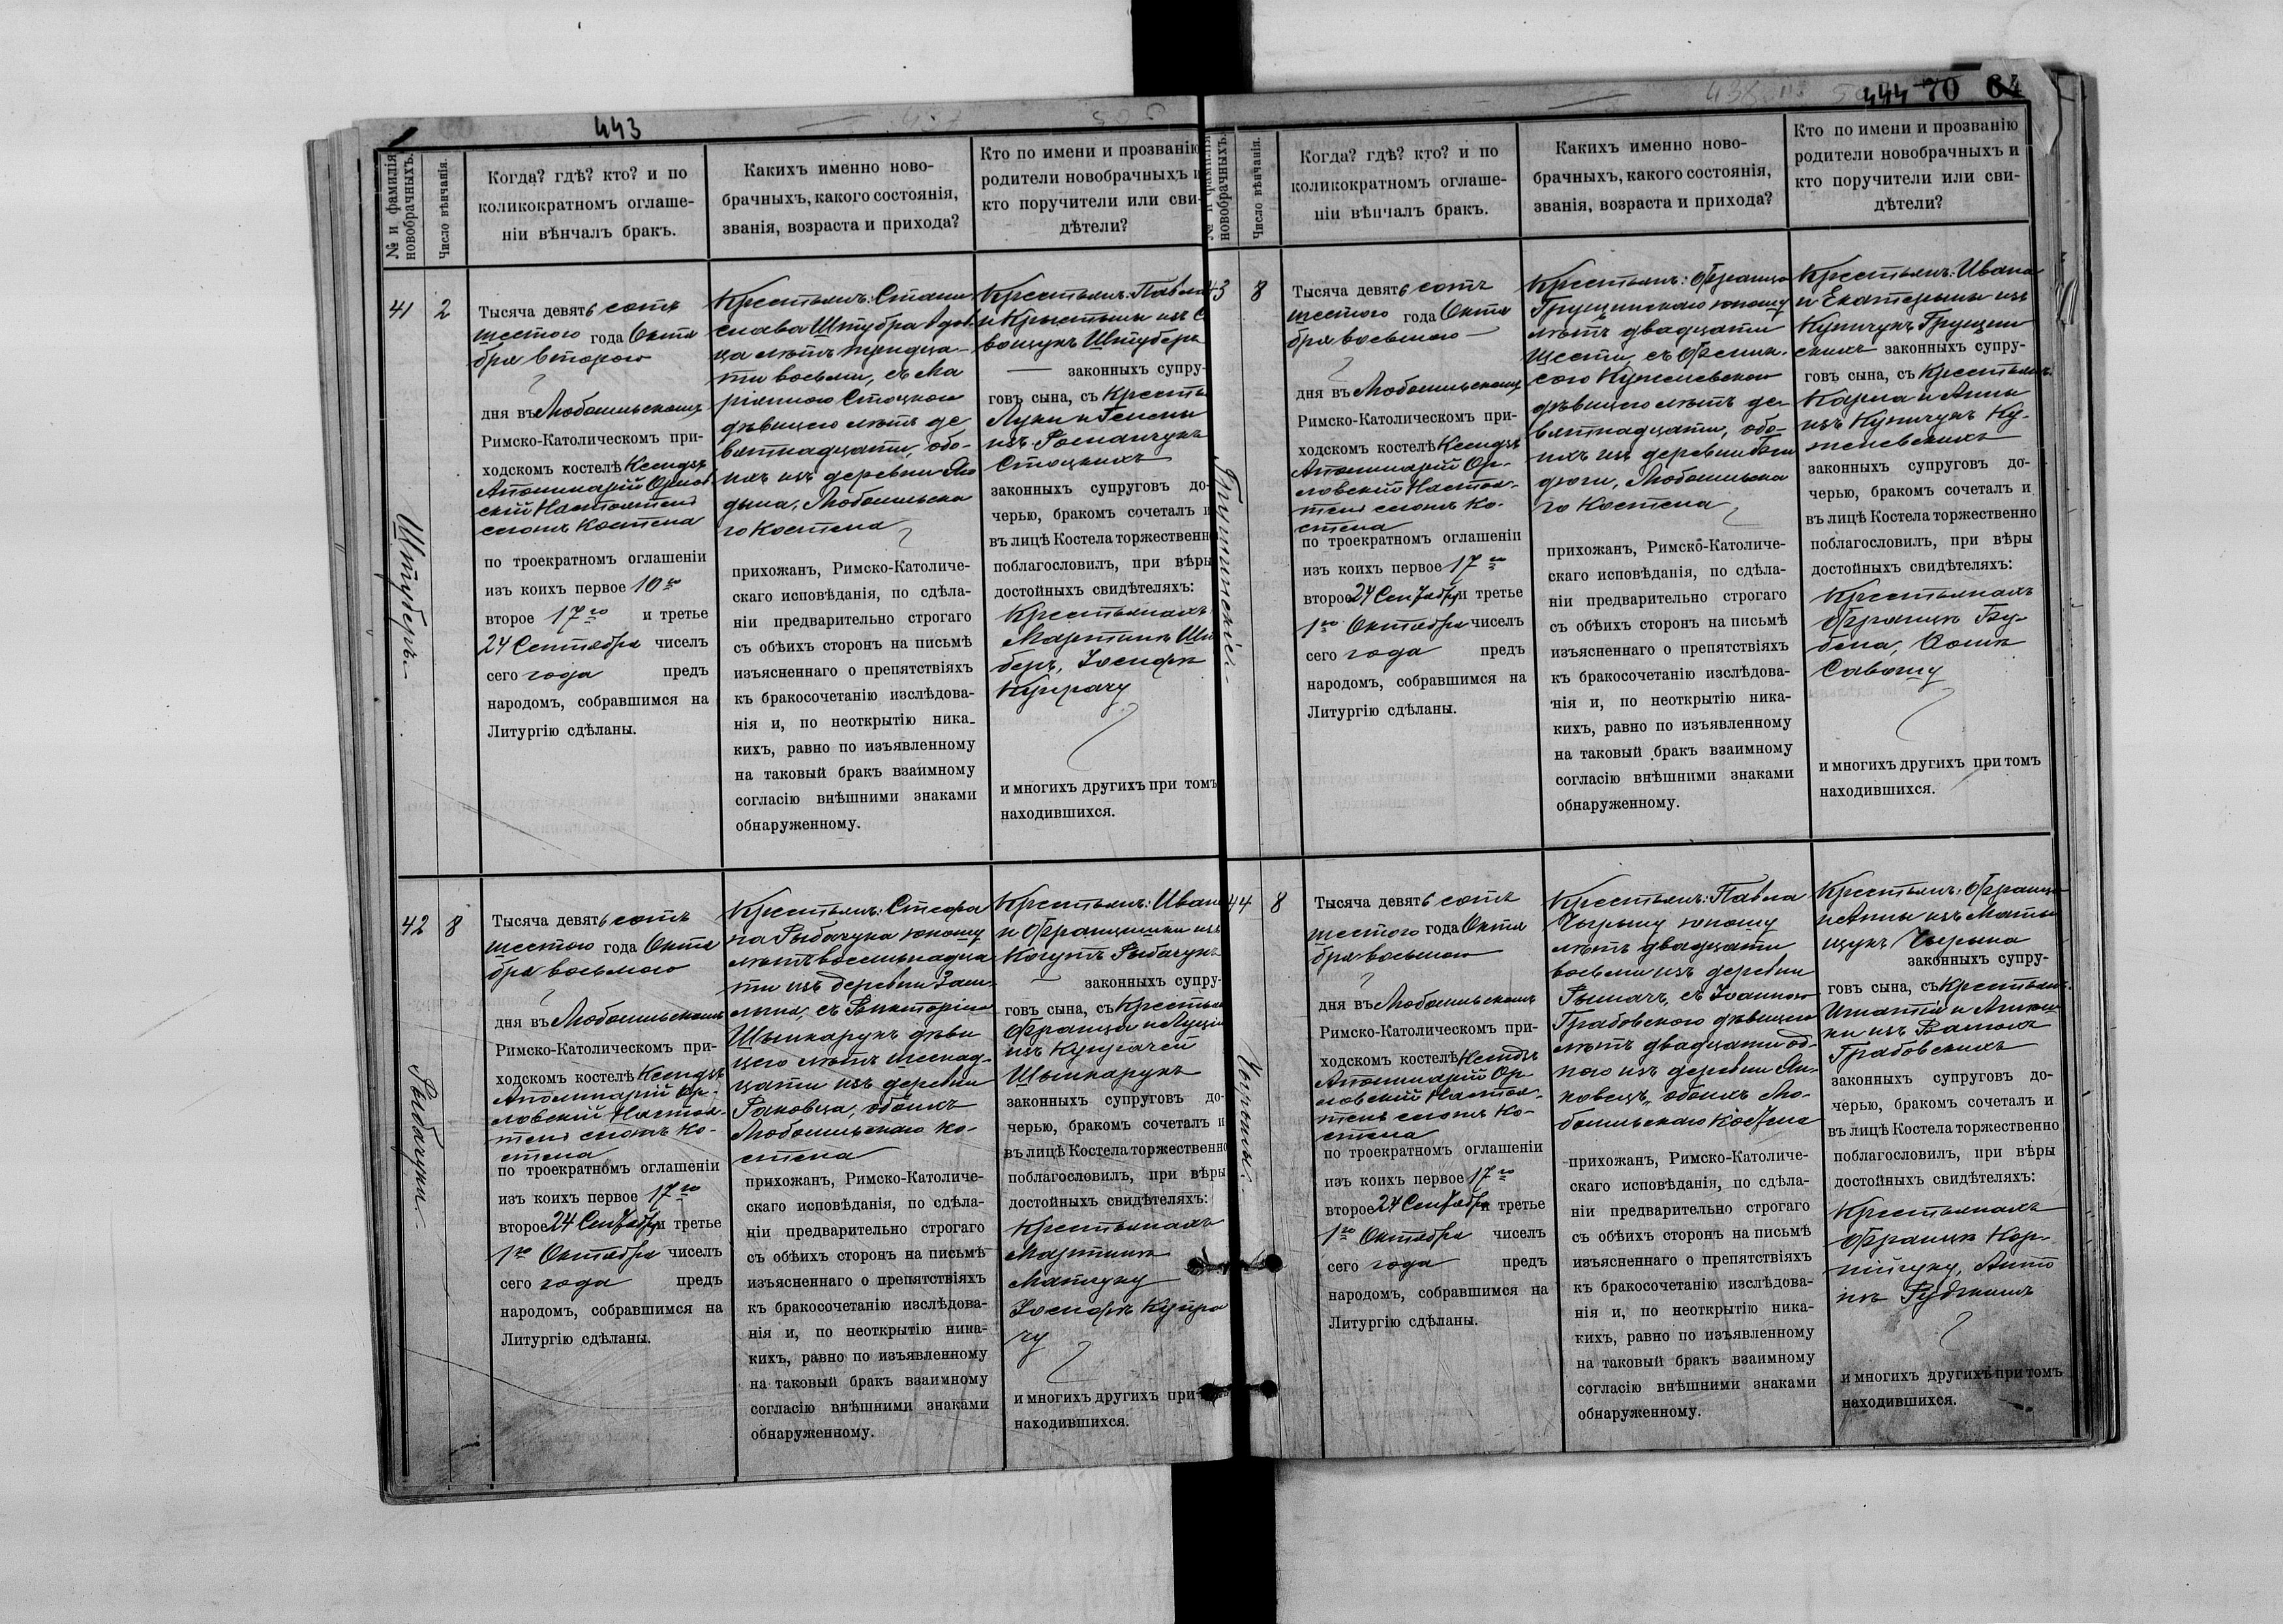 443
№ и фамилія новобрачныхъ.
Число вѣнчанія.
Когда? гдѣ? кто? и по
коликократномъ оглаше-
ніи вѣнчалъ бракъ.
Какихъ именно ново-
брачныхъ, какого состоянія,
званія, возраста и прихода?
Кто по имени и прозванію
родители новобрачныхъ и
кто поручители или сви-
дѣтели?
41
2
Штуберъ.
Тысяча девять сотъ
шестого года Октя
бря второго
дня въ Любомльскомъ
Римско-Католическомъ при-
ходскомъ костелѣ Ксендзъ
Аполинарій Орлов
скій Настоятель
сногъ Костела
по троекратномъ оглашеніи
изъ коихъ первое 10го
второе 17го и третье
24 Сентября чиселъ
сего года предъ
народомъ, собравшимся на
Литургію сдѣланы.
Крестьянъ: Стани
слава Штубра вдов
ца лѣтъ тридца-
ти восьми, съ Ма
ріянною Стоцкою
дѣвицею лѣтъ де
вятнадцати, обо-
ихъ изъ деревни Яго
дына, Любомльска
го Костела
прихожанъ, Римско-Католиче-
скаго исповѣданія, по сдѣла-
ніи предварительно строгаго
съ обѣихъ сторонъ на письмѣ
изъясненнаго о препятствіяхъ
къ бракосочетанію изслѣдова-
нія и, по неоткрытію ника-
кихъ, равно по изъявленному
на таковый бракъ взаимному
согласію внѣшними знаками
обнаруженному.
Крестьянъ: Павла
и Крыстыны изъ С
вощукъ Штуберъ
законныхъ супру-
говъ сына, съ Кресть
Луки и Гелены
изъ Романчукъ
Стоцкихъ
законныхъ супруговъ до-
черью, бракомъ сочеталъ и
въ лицѣ Костела торжественно
поблагословилъ, при вѣры
достойныхъ свидѣтеляхъ:
Крестьянахъ
Мартинѣ Шту
беръ, Іосифѣ
Купрачу
и многихъ другихъ при томъ
находившихся.
42
8
Рыбачуки.
Тысяча девять сотъ
шестого года Октя
бря восьмого
дня въ Любомльскомъ
Римско-Католическомъ при-
ходскомъ костелѣ Ксендзъ
Аполинарій Ор-
ловскій Настоя-
тель сногъ Ко-
стела
по троекратномъ оглашеніи
изъ коихъ первое 17го
второе 24 Сентября и третье
1го Октября чиселъ
сего года предъ
народомъ, собравшимся на
Литургію сдѣланы.
Крестьянъ: Стефа
на Рыбачука юношу
лѣтъ восемнадца
ти изъ деревни Зам-
лынья, съ Викторіею
Шынкарукъ дѣви
цею лѣтъ шеснад-
цати изъ деревни
Раковца, обоихъ
Любомльскаго ко-
стела
прихожанъ, Римско-Католиче-
скаго исповѣданія, по сдѣла-
ніи предварительно строгаго
съ обѣихъ сторонъ на письмѣ
изъясненнаго о препятствіяхъ
къ бракосочетанію изслѣдова-
нія и, по неоткрытію ника-
кихъ, равно по изъявленному
на таковый бракъ взаимному
согласію внѣшними знаками
обнаруженному.
Крестьянъ: Ивана
и Францишки изъ
Когутъ Рыбачукъ
законныхъ супру-
говъ сына, съ Крестьян
Францa и Луціи
изъ Купрачей
Шынкарукъ
законныхъ супруговъ до-
черью, бракомъ сочеталъ и
въ лицѣ Костела торжественно
поблагословилъ, при вѣры
достойныхъ свидѣтеляхъ:
Крестьянахъ
Мартинѣ
Мапчуку
Іосифѣ Купра
чу
и многихъ другихъ при
находившихся.
444 70 64
№ и фамилія новобрачныхъ.
Число вѣнчанія.
Когда? гдѣ? кто? и по
коликократномъ оглаше-
ніи вѣнчалъ бракъ.
Какихъ именно ново-
брачныхъ, какого состоянія,
званія, возраста и прихода?
Кто по имени и прозванію
родители новобрачныхъ и
кто поручители или сви-
дѣтели?
43
8
Грущинскіе.
Тысяча девять сотъ
шестого года Октя
бря восьмого
дня въ Любомльскомъ
Римско-Католическомъ при-
ходскомъ костелѣ Ксендзъ
Аполинарій Ор-
ловскій Настоя-
тель сногъ Ко-
стела
по троекратномъ оглашеніи
изъ коихъ первое 17го
второе 24 Сентября и третье
1го Октября чиселъ
сего года предъ
народомъ, собравшимся на
Литургію сдѣланы.
Крестьянъ: Франца
Грущинскаго юношу
лѣтъ двадцати
шести, съ Фелик-
сою Кужелевскою
дѣвицею лѣтъ де-
вятнадцати, обо-
ихъ изъ деревни
дюги, Любомльска
го Костела
прихожанъ, Римско-Католиче-
скаго исповѣданія, по сдѣла-
ніи предварительно строгаго
съ обѣихъ сторонъ на письмѣ
изъясненнаго о препятствіяхъ
къ бракосочетанію изслѣдова-
нія и, по неоткрытію ника-
кихъ, равно по изъявленному
на таковый бракъ взаимному
согласію внѣшними знаками
обнаруженному.
Крестьянъ: Ивана
и Екатерыны изъ
Купчукъ Грущин
скихъ законныхъ супру-
говъ сына, съ Крестьянъ.
Карла и Анны
изъ Купчукъ Ку-
желевскихъ
законныхъ супруговъ до-
черью, бракомъ сочеталъ и
въ лицѣ Костела торжественно
поблагословилъ, при вѣры
достойныхъ свидѣтеляхъ:
Крестьянахъ
Францѣ Бу-
бела,
Савошу
и многихъ другихъ при томъ
находившихся.
44
8
Чырыпы.
Тысяча девять сотъ
шестого года Октя
бря восьмого
дня въ Любомльскомъ
Римско-Католическомъ при-
ходскомъ костелѣ Ксендзъ
Аполинарій Ор-
ловскій Настоя-
тель сногъ Ко-
стела
по троекратномъ оглашеніи
изъ коихъ первое 17го
второе 24 Сентября и третье
1го Октября чиселъ
сего года предъ
народомъ, собравшимся на
Литургію сдѣланы.
Крестьянъ: Павла
Чырыпу юношу
лѣтъ двадцати
восьми изъ деревни
Рымачъ, съ Іоанною
Грабовскою дѣвицею
лѣтъ двадцати од-
ного изъ деревни Ян-
ковецъ, обоихъ Лю-
бомльскаго Костела
прихожанъ, Римско-Католиче-
скаго исповѣданія, по сдѣла-
ніи предварительно строгаго
съ обѣихъ сторонъ на письмѣ
изъясненнаго о препятствіяхъ
къ бракосочетанію изслѣдова-
нія и, по неоткрытію ника-
кихъ, равно по изъявленному
на таковый бракъ взаимному
согласію внѣшними знаками
обнаруженному.
Крестьянъ: Франца
и Анны изъ Маты
щукъ Чырыпа
законныхъ супру-
говъ сына, съ Крестьянъ.
Игнатія и
ки изъ
Грабовскихъ
законныхъ супруговъ до-
черью, бракомъ сочеталъ и
въ лицѣ Костела торжественно
поблагословилъ, при вѣры
достойныхъ свидѣтеляхъ:
Крестьянахъ
Францѣ Кор-
нійчуку, Анто
нѣ
и многихъ другихъ при томъ
находившихся.